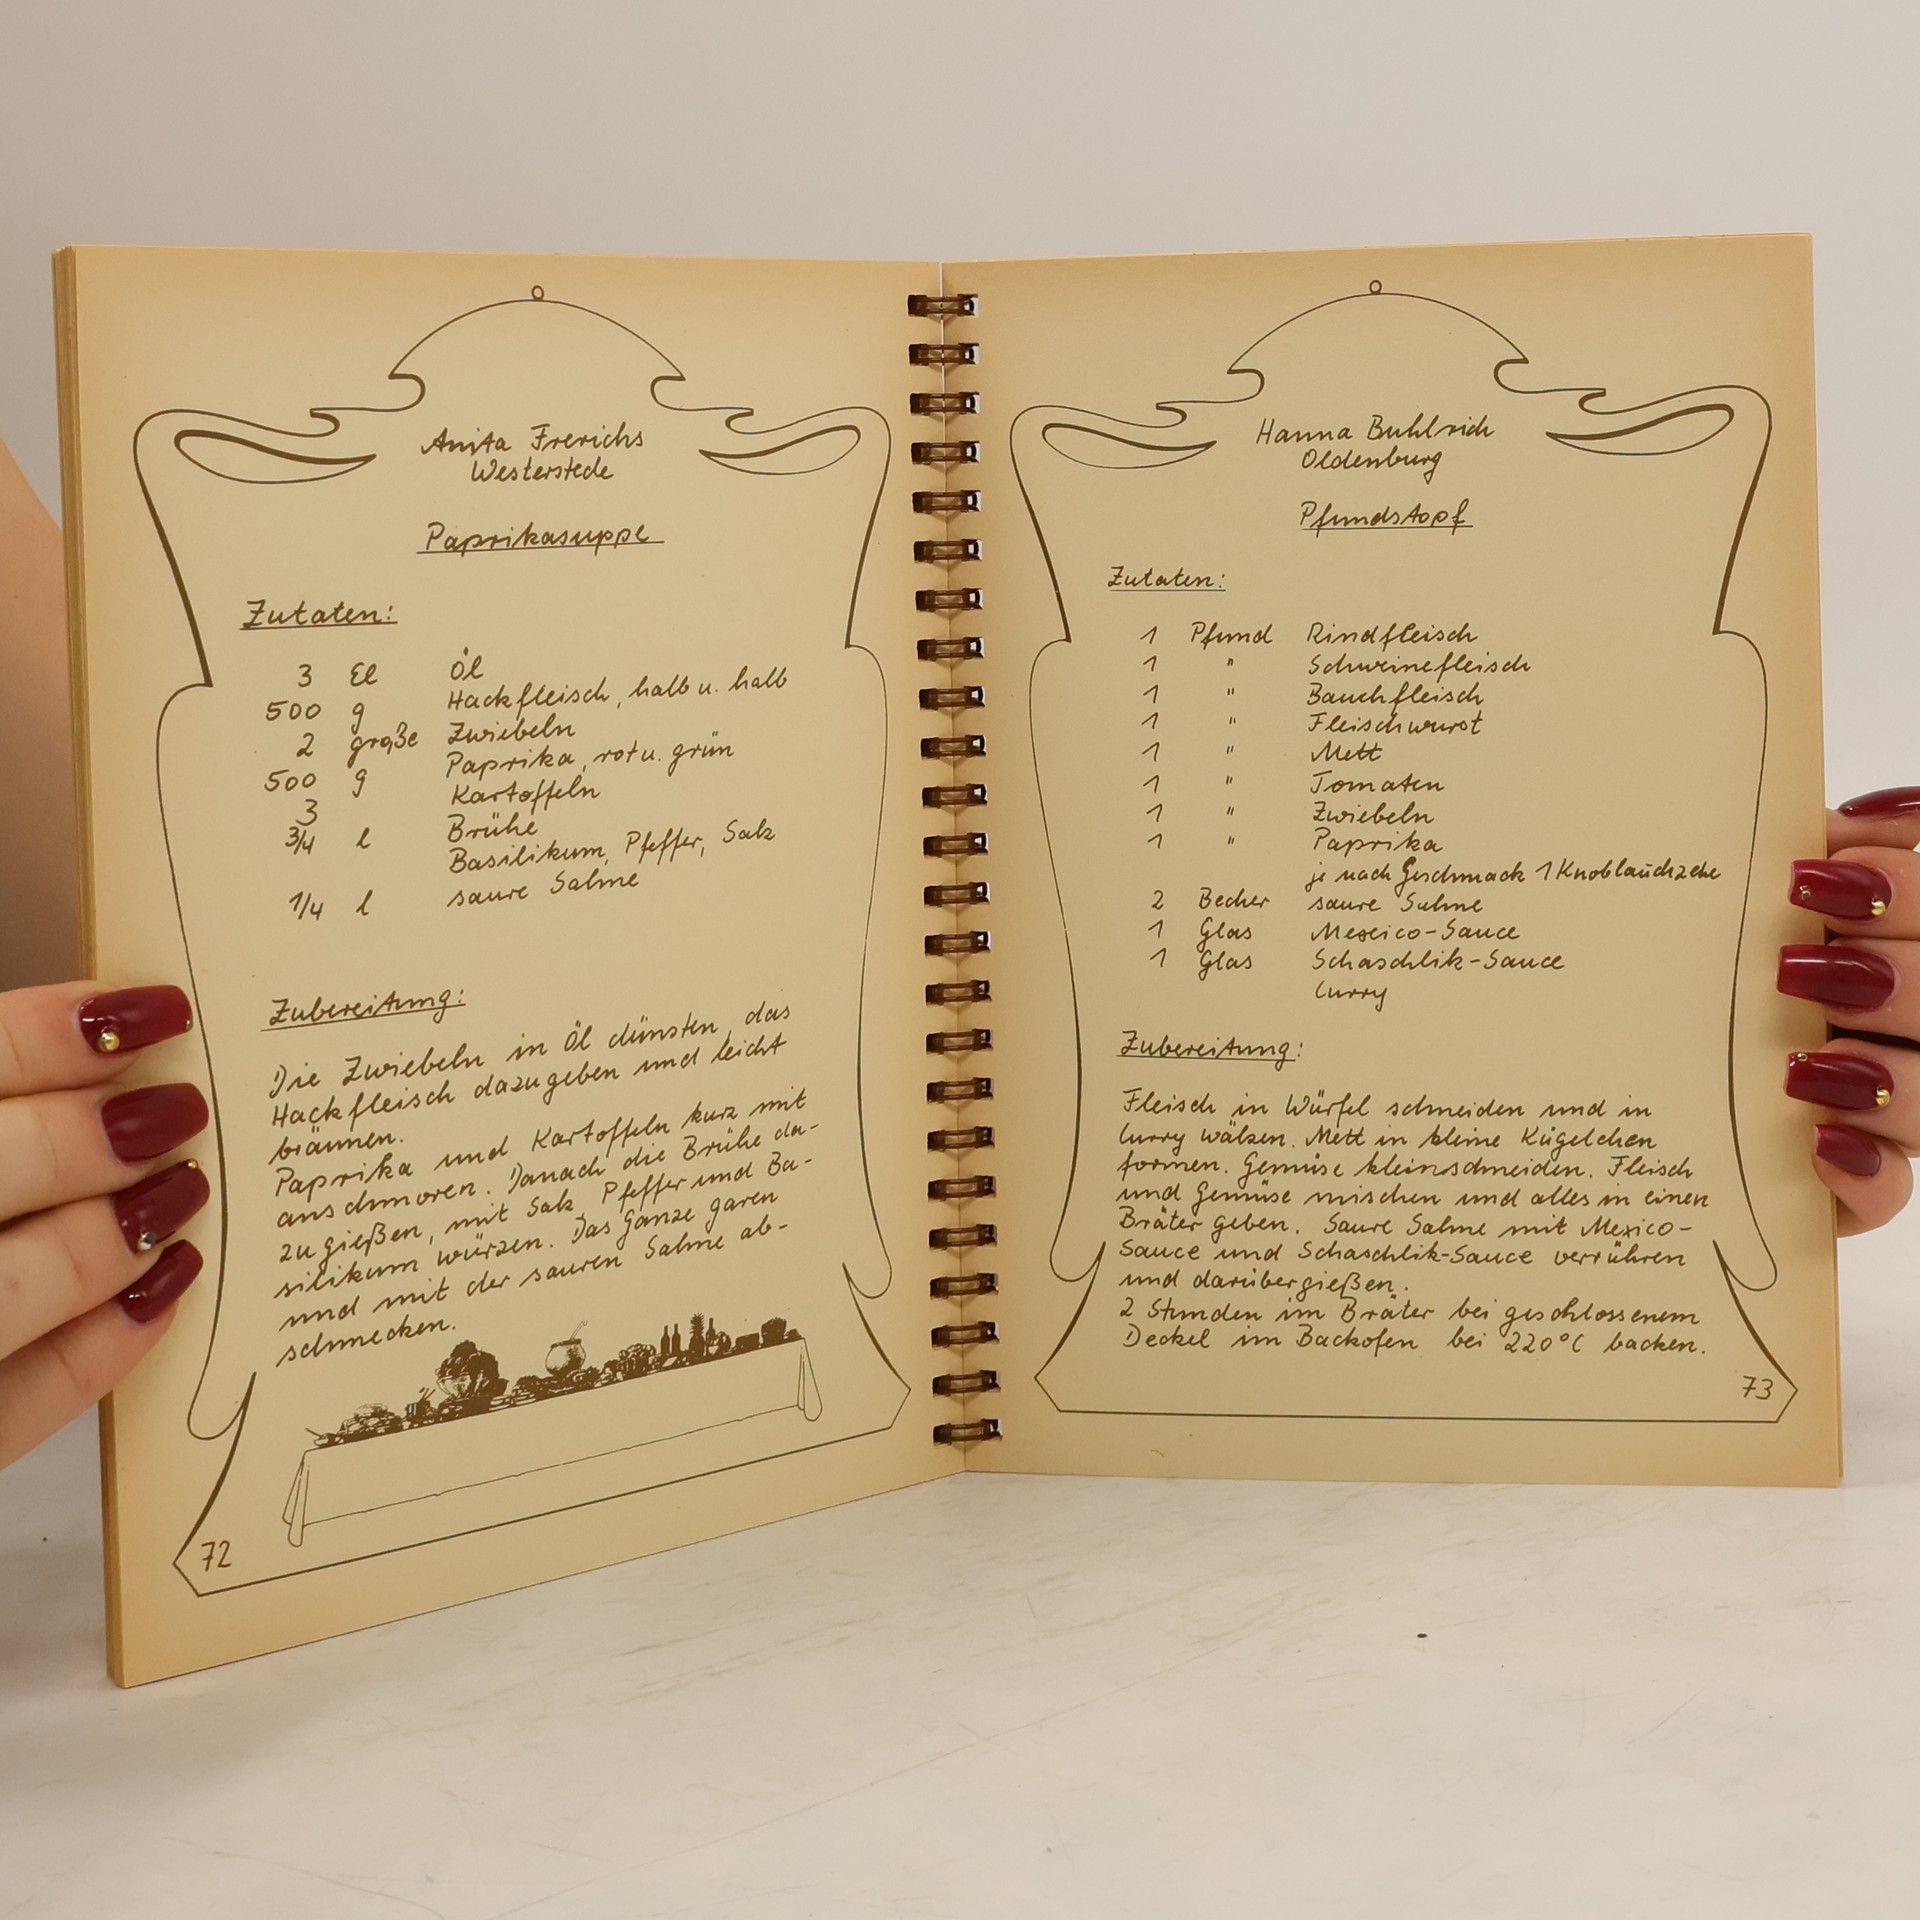 Anita Frerichs
Westerstede
Paprikasuppe
Zutaten:
3 El Öl
500 g Hackfleisch, halb u. halb
2 große Zwiebeln
500 g Paprika, rot u. grün
3 Kartoffeln
3/4 l Brühe
Basilikum, Pfeffer, Salz
1/4 l saure Sahne
Zubereitung:
Die Zwiebeln in Öl dünsten, das
Hackfleisch dazugeben und leicht
bräunen.
Paprika und Kartoffeln kurz mit
anschmoren. Danach die Brühe da-
zu gießen, mit Salz, Pfeffer und Ba-
silikum würzen. Das Ganze garen
und mit der sauren Sahne ab-
schmecken.
72
Hanna Buhlrich
Oldenburg
Pfundstopf
Zutaten:
1 Pfund Rindfleisch
1 " Schweinefleisch
1 " Bauchfleisch
1 " Fleischwurst
1 " Mett
1 " Tomaten
1 " Zwiebeln
1 " Paprika
je nach Geschmack 1 Knoblauchzehe
2 Becher saure Sahne
1 Glas Mexico-Sauce
1 Glas Schaschlik-Sauce
Curry
Zubereitung:
Fleisch in Würfel schneiden und in
Curry wälzen. Mett in kleine Kügelchen
formen. Gemüse kleinschneiden. Fleisch
und Gemüse mischen und alles in einen
Bräter geben. Saure Sahne mit Mexico-
Sauce und Schaschlik-Sauce verrühren
und darübergießen.
2 Stunden im Bräter bei geschlossenem
Deckel im Backofen bei 220°C backen.
73